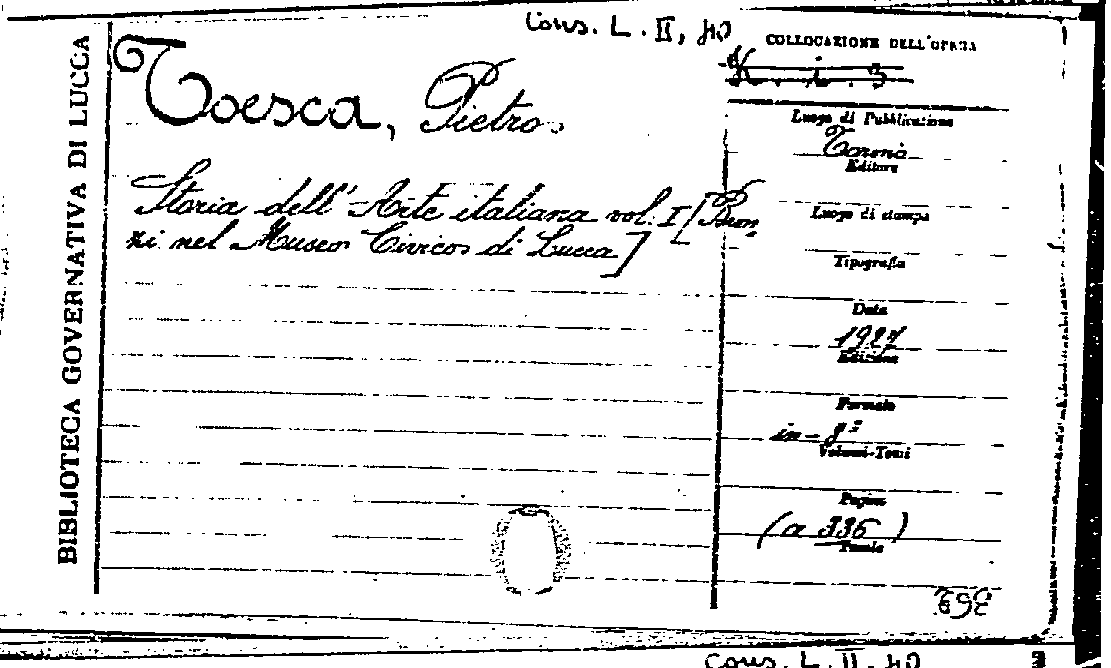 Cons. L. II, 40
COLLOCAZIONE DELL'OPERA
K. i. 3
BIBLIOTECA GOVERNATIVA DI LUCCA
Toesca, Pietro.
Storia dell'Arte italiana vol. I [Bron
zi nel Museo Civico di Lucca]
Luogo di Pubblicazione
Torino
Editore
Luogo di stampa
Tipografia
Data
1927
Edizione
Formato
in-8º
Volumi-Tomi
Pagine
(a 336)
Tavole
369
Cons. L. II. 40